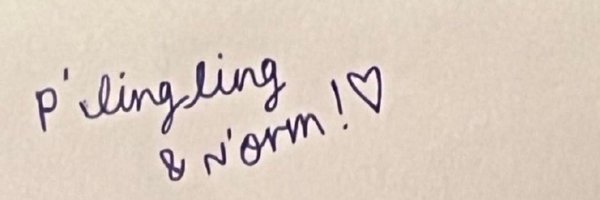 P'lingling
& N'orm!♡